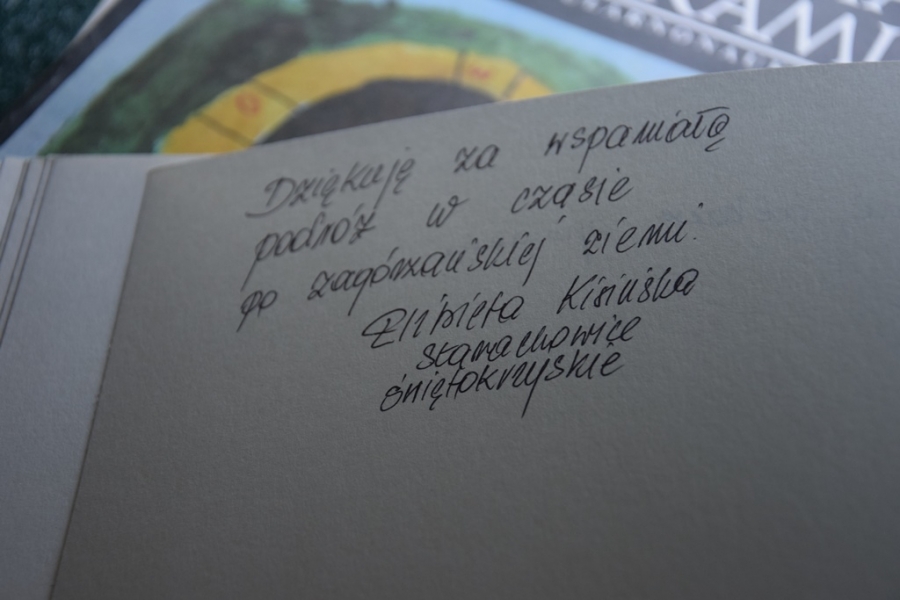 RAMI
Dziękuję za wspaniałą
podróż w czasie
po zagórzańskiej ziemi.
Elżbieta Kisińska
Starachowice
świętokrzyskie